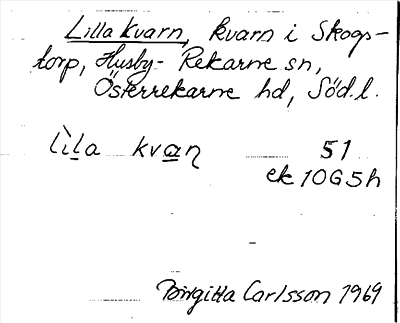 Lilla Kvarn, kvarn i Skogs-
torp, Husby-Rekarne sn,
Österrekarne hd, Söd.l.
lìla kvaɳ 51
ek 10G5h
Birgitta Carlsson 1969